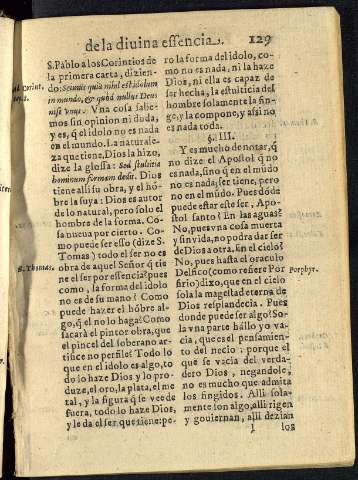 de la divina essencia. 129
S. Pablo a los Corintios de
la primera carta, dizien-
do: Scimus quia nihil est idolum
in mundo, & quòd nullus Deus
nisi vnus. Vna cosa sabe-
mos sin opinion ni duda,
y es, q̃ el idolo no es nada
en el mundo. La naturale-
za que tiene, Dios la hizo,
dize la glossa: Sed stultitia
hominum formam dedit. Dios
tiene alli su obra, y el hõ-
bre la suya: Dios es autor
de lo natural, pero solo el
hombre de la forma. Co-
sa nueua por cierto. Co-
mo puede ser esso (dize S.
Tomas) todo el ser no es
obra de aquel Señor q̃ tie
ne el ser por essencia? pues
como, la forma del idolo
no es de su mano? Como
puede hazer el hõbre al-
go, q̃ el no lo haga? Como
sacarà el pintor obra, que
el pincel del soberano ar-
tifice no perfile? Todo lo
que en el idolo es algo, to
do lo haze Dios y lo pro-
duze, el oro, la plata, el me
tal, y la figura q̃ se vee de
fuera, todo lo haze Dios,
y le da el ser que tiene: pe-
Ad Corint.
S. Thomas.
ro la forma del idolo, co-
mo no es nada, ni la haze
Dios, ni ella es capaz de
ser hecha, la estulticia del
hombre solamente la fin-
ge, y la compone, y assi no
es nada toda.
§. III.
Y es mucho de notar, q̃
no dize el Apostol q̃ no
es nada, sino q̃ en el mũdo
no es nada; ser tiene, pero
no en el mũdo. Pues dõde
puede estar este ser, Apo-
stol santo? En las aguas?
No, pues vna cosa muerta
y sin vida, no podra dar ser
de Dios a otra. En el cielo?
No, pues hasta el oraculo
Delfico (como refiere Por
firio) dixo, que en el cielo
sola la magestad eterna de
Dios resplandecia. Pues
donde puede ser algo? So-
la vna parte hallo yo va-
cia, que es el pensamien-
to del necio: porque el
que se vacia del verda-
dero Dios, negandole,
no es mucho que admita
los fingidos. Alli sola-
mente son algo, alli rigen
y gouiernan, alli dezian
Porphyr.
I los